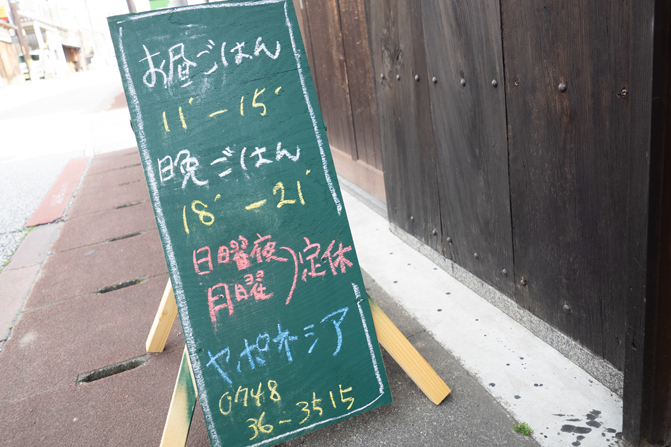 お昼ごはん
11′－15′
晩ごはん
18′－21′
日曜夜
月曜)定休
ヤポネシア
0748
36-3515